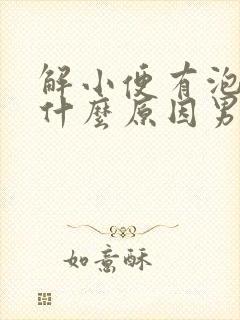 解小便有泡
什麼原因男
如意酥